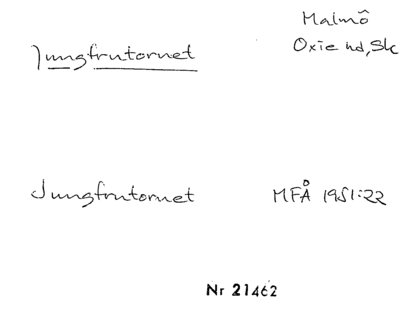 Malmö
Jungfrutornet
Oxie hd, Sk
Jungfrutornet
MFÅ 1951:22
Nr 21462